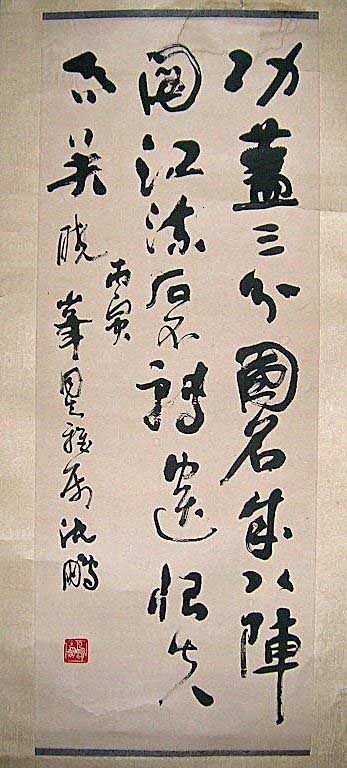 功蓋三分國名成八陣
圖江流石不轉遺恨失
吞吴
丙寅
晓峯同志雅属沈鹏